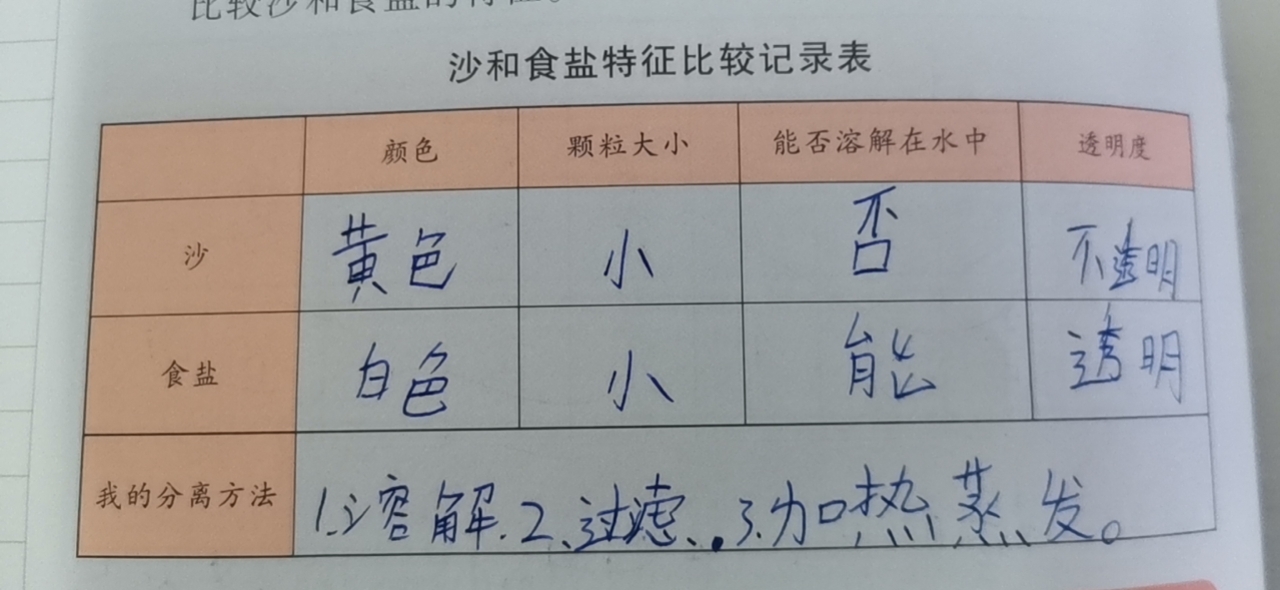 比较沙和食盐的特征。
沙和食盐特征比较记录表
颜色 颗粒大小 能否溶解在水中 透明度
沙 黄色 小 否 不透明
食盐 白色 小 能 透明
我的分离方法 1.溶解.2、过滤、.3.加热蒸发。